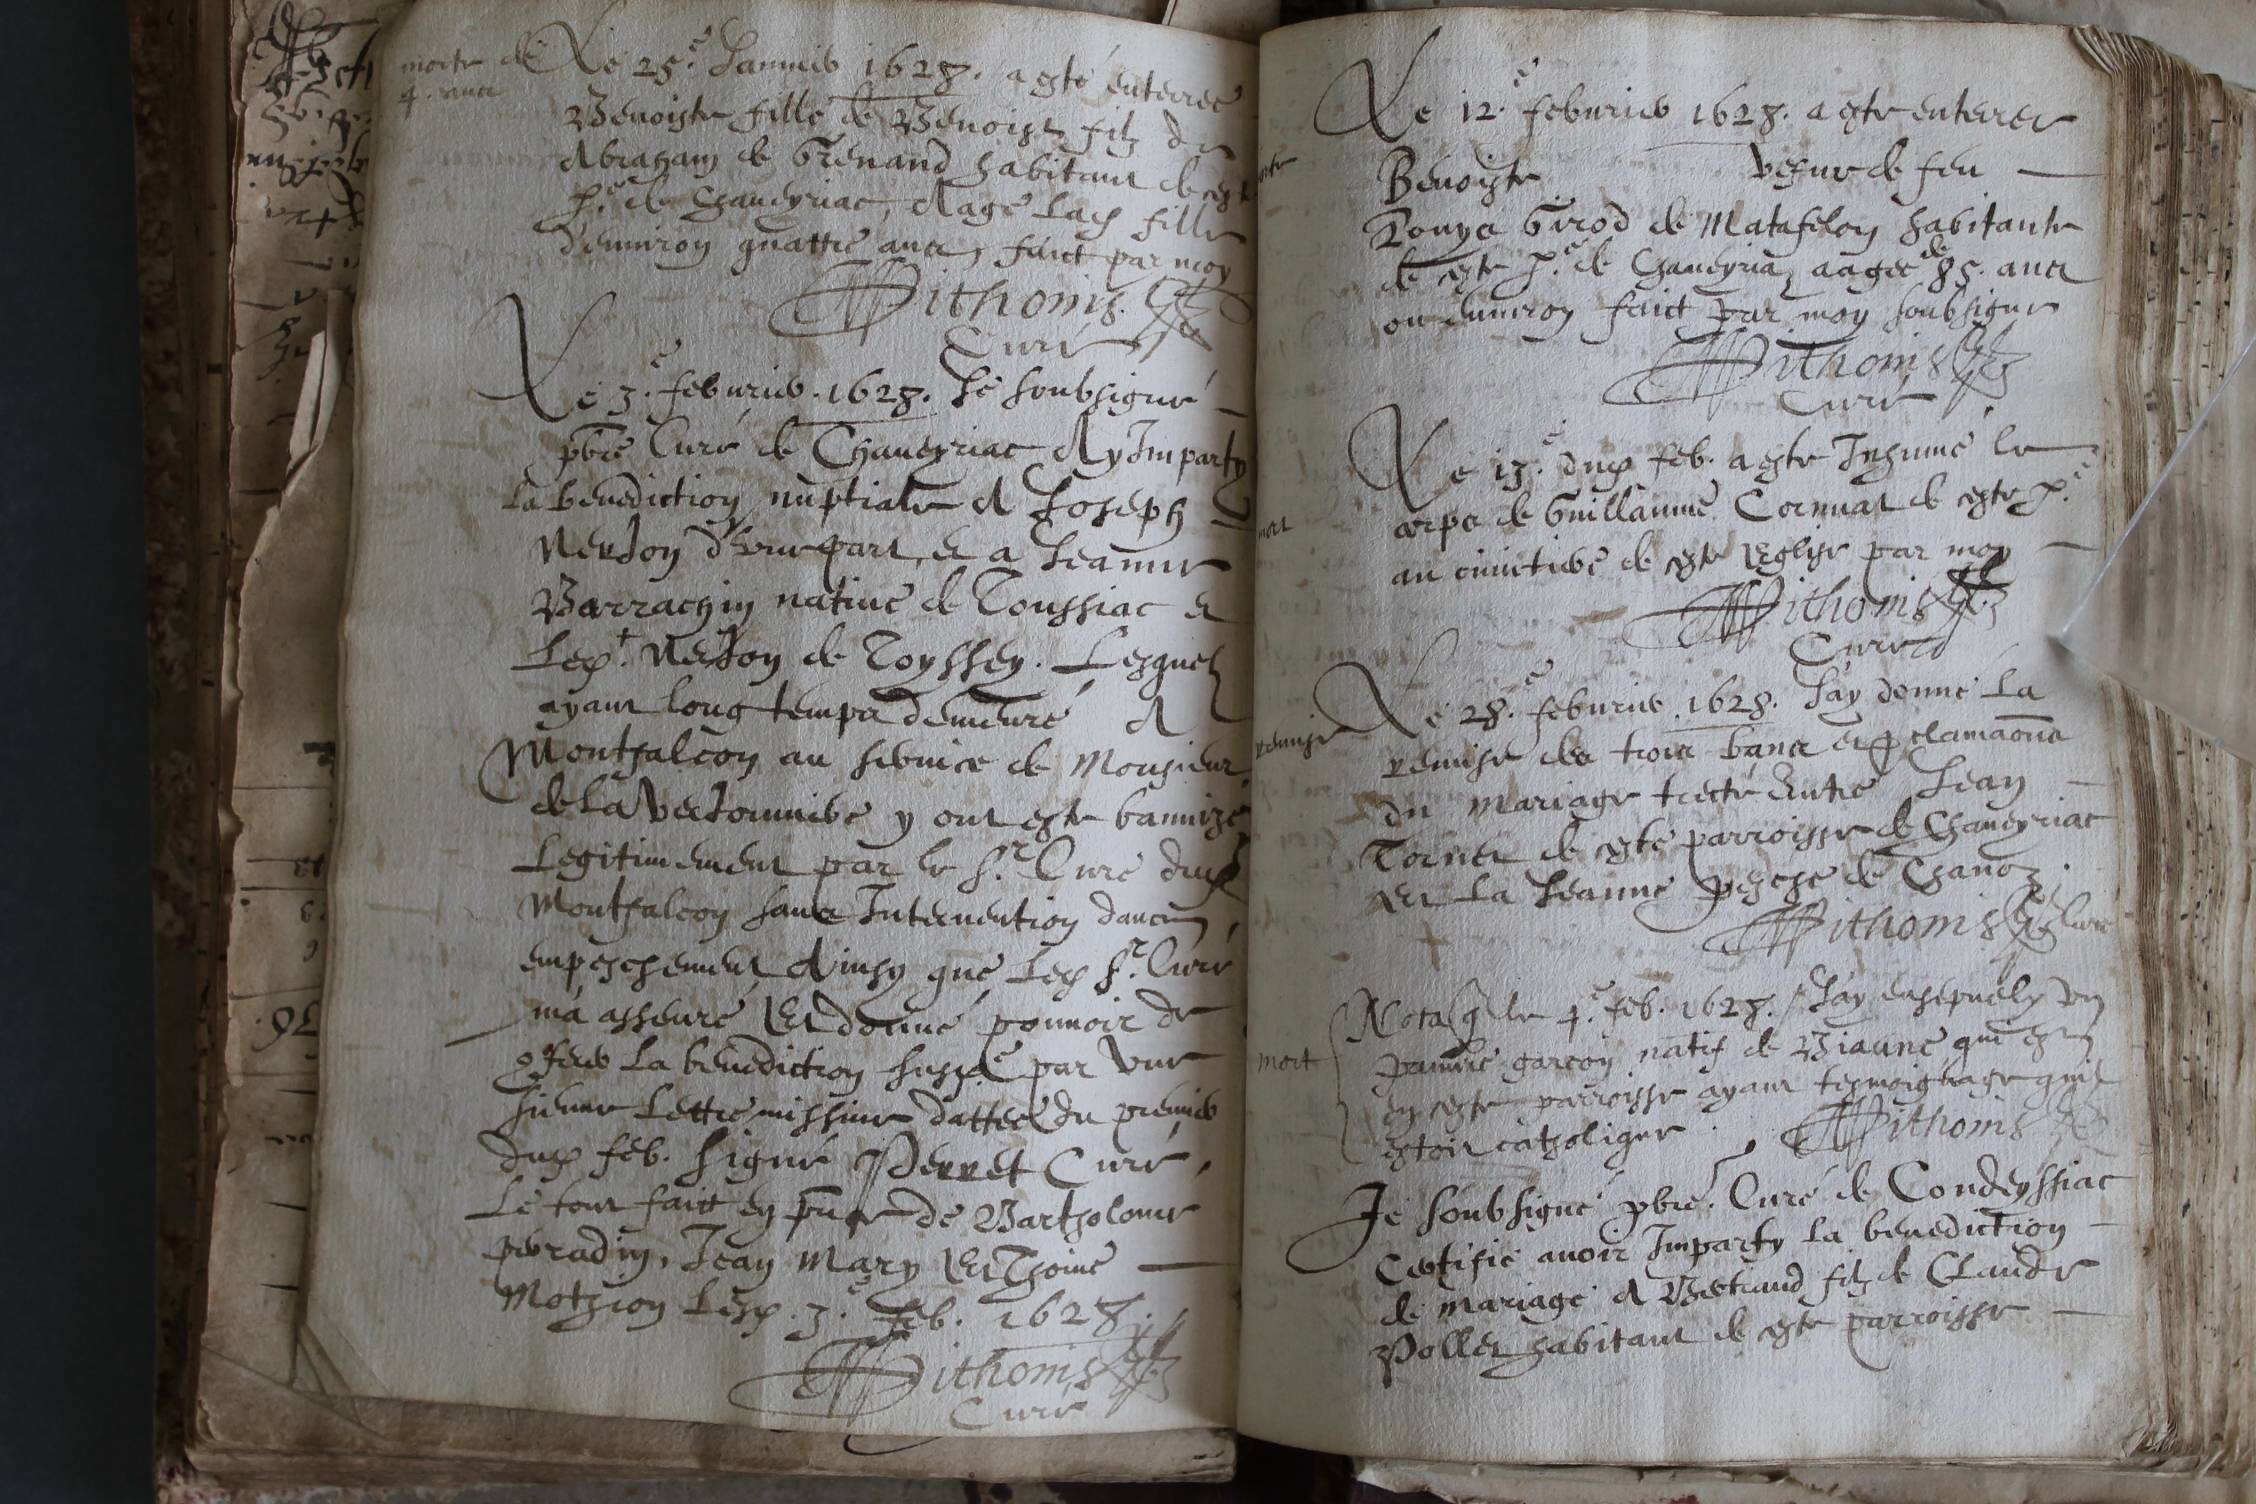 morte de
4. ans
Le 25.e Januier 1628. a esté enterreé
Benoiste fille de Benoist filz de
Abraham de Grenand habitant de cest
p.e de Chaueyriac, Aage lad fille
d'enuiron quattre ans, faict par moy
Pithonis.
Curé
Le 3.e feburier. 1628. Je soubsigné
pbre Curé de Chaueyriac Ay Imparty
la benediction nuptiale A Joseph
Verdon d'vne part, et a Jeanne
Barrachin natiue de Toussiac et
Led.t Verdon de Toyssey. Lesquelz
ayant long temps demeuré A
Montfalcon au seruice de Monsieur
de la Verdonniere y ont este bannizé
Legitimement par le S.r Curé dud
Montfalcon sans Interuention daucun
empeschement Ainsy que Led S.r Curé
ma asseuré Et donné pouuoir de
9ferer la benediction susd.e par vne
sienne lettre missiue datteé du premier
dud feb. signé Perret Curé,
Le tout faict en pnce de Bartholomé
peradin, Jean Mary Et Thoine
Mothion Lesd. 3.e feb. 1628.
Pithonis
Curé
Le 12.e feburier 1628. a este enterree
Benoiste vesue de feu
Louys Grod de Matafelon habitante
de ceste p.e de Chaueyria, aagee de 85. ans
ou enuiron faict par moy soubsigne
Pithonis
Curé
mort
Le 13.e dud feb. a este Inhumé le
corps de Guillaume Cornuat de ceste p.e
au cimetiere de ceste Eglise par moy
Pithonis
Curé
remise
Le 28.e feburier 1628. Jay donné la
remise des trois bans et pclamaons
du mariage trecté Entre Jean
Tornet de ceste parroisse de Chaueyriac
Et la Jeanne de Chanoz.
Pithonis Curé
mort
Nota q le 4.e feb. 1628. Jay ensepuely vn
pauure garçon natif de Biaune qui
en ceste parroisse ayant tesmoignage quil
estoit catholique. Pithonis
Je soubsigné pbre. Curé de Condeyssiac
Certifie auoir Imparty la benediction
de mariage A Bertrand filz de Claude
Pollet habitant de ceste parroisse